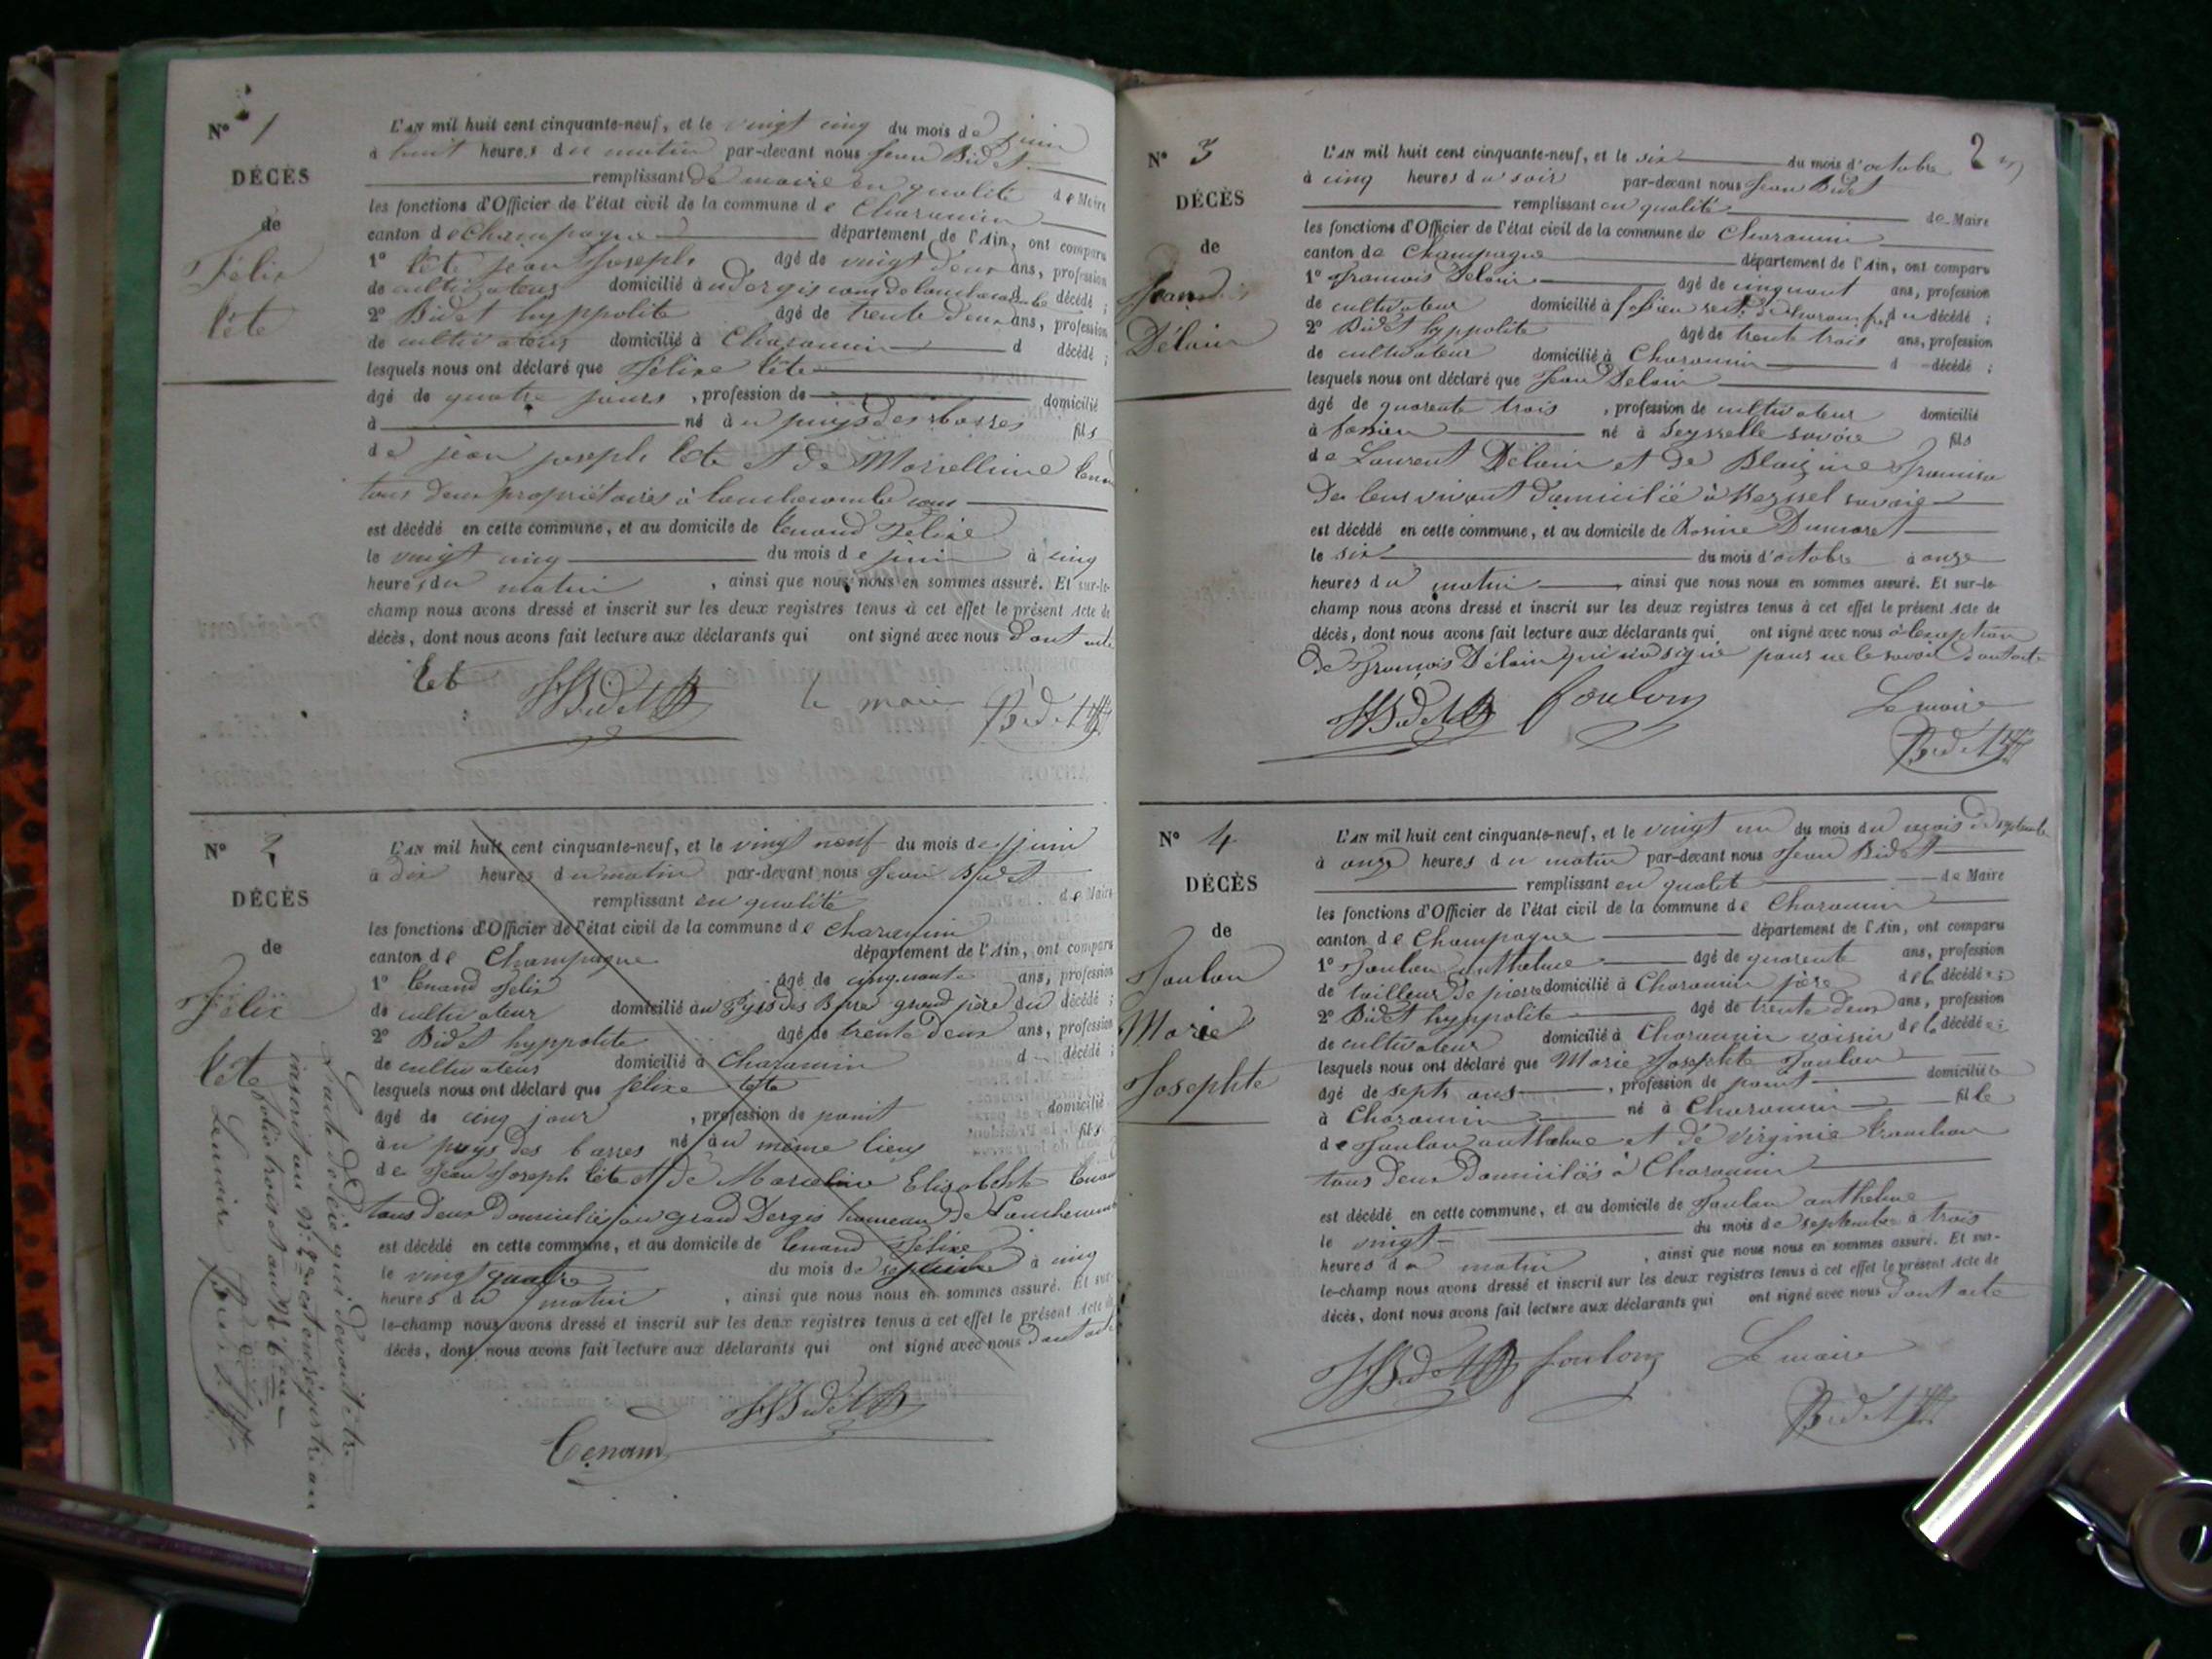 N° 1
DÉCÈS
de
Félix
Tête
L'AN mil huit cent cinquante-neuf, et le vingt cinq du mois de juin
à huit heures du matin par-devant nous Jean Bidet
remplissant de maire en qualité de Maire
les fonctions d'Officier de l'état civil de la commune de Charancin
canton de Champagne département de l'Ain, ont comparu
1° Tête jean Joseph âgé de vingt deux ans, profession
de cultivateur domicilié à décédé ;
2° Bidet hyppolite âgé de trente deux ans, profession
de cultivateur domicilié à Charancin d décédé ;
lesquels nous ont déclaré que Félixe Tête
âgé de quatre jours , profession de domicilié
à né à fils
de jean joseph Tête et de
tous deux propriétaires à
est décédé en cette commune, et au domicile de Tenand Félixe
le vingt cinq du mois de juin à cinq
heures du matin , ainsi que nous nous en sommes assuré. Et sur-le-
champ nous avons dressé et inscrit sur les deux registres tenus à cet effet le présent Acte de
décès, dont nous avons fait lecture aux déclarants qui ont signé avec nous dont acte
le maire Bidet
N° 2
DÉCÈS
de
Félix
Tête
L'AN mil huit cent cinquante-neuf, et le vingt neuf du mois de juin
à dix heures du matin par-devant nous Jean Bidet
remplissant en qualité de Maire
les fonctions d'Officier de l'état civil de la commune de Charancin
canton de Champagne département de l'Ain, ont comparu
1° Tenand Felix âgé de cinquante ans, profession
de cultivateur domicilié au grand père du décédé ;
2° Bidet hyppolite âgé de trente deux ans, profession
de cultivateur domicilié à Charancin d décédé ;
lesquels nous ont déclaré que felixe tête
âgé de cinq jour , profession de domicilié
au pays des barres né au même lieux fils
de Jean Joseph Tête et de Elisabeth Tenand
tous deux domiciliés au grand Dergis hameau de
est décédé en cette commune, et au domicile de Tenand Félixe
le vingt quatre du mois de à cinq
heures du matin , ainsi que nous nous en sommes assuré. Et sur-
le-champ nous avons dressé et inscrit sur les deux registres tenus à cet effet le présent Acte de
décès, dont nous avons fait lecture aux déclarants qui ont signé avec nous dont acte
Tenand
L'acte de décès qui devait être
inscrit au N° 2 est enregistré au
folio trois et au N° 6
Le maire Bidet
2
N° 3
DÉCÈS
de
Jean
Délain
L'AN mil huit cent cinquante-neuf, et le six du mois d'octobre
à cinq heures du soir par-devant nous Jean Bidet
remplissant en qualité de Maire
les fonctions d'Officier de l'état civil de la commune de Charancin
canton de Champagne département de l'Ain, ont comparu
1° François Délain âgé de cinquant ans, profession
de cultivateur domicilié à du décédé ;
2° Bidet hyppolite âgé de trente trois ans, profession
de cultivateur domicilié à Charancin d décédé ;
lesquels nous ont déclaré que Jean Délain
âgé de quarente trois , profession de cultivateur domicilié
à né à Seysselle savoie fils
de Laurent Délain et de
de leur vivant domicilié à Seyssel savoie
est décédé en cette commune, et au domicile de Rosine Dumaret
le six du mois d'octobre à onze
heures du matin , ainsi que nous nous en sommes assuré. Et sur-le-
champ nous avons dressé et inscrit sur les deux registres tenus à cet effet le présent Acte de
décès, dont nous avons fait lecture aux déclarants qui ont signé avec nous à l'exeption
de François Délain qui n'a signé pour ne le savoir dont acte
foulon Le maire
Bidet
N° 4
DÉCÈS
de
Foulon
Marie
Josephte
L'AN mil huit cent cinquante-neuf, et le vingt un du mois du mois de septembre
à onze heures du matin par-devant nous Jean Bidet
remplissant en qualité de Maire
les fonctions d'Officier de l'état civil de la commune de Charancin
canton de Champagne département de l'Ain, ont comparu
1° Foulon anthelme âgé de quarente ans, profession
de tailleur de piere domicilié à Charancin père de la décédée ;
2° Bidet hyppolite âgé de trente deux ans, profession
de cultivateur domicilié à Charancin voisin de la décédée ;
lesquels nous ont déclaré que Marie Josephte Foulon
âgé de septs ans , profession de point domiciliée
à Charancin né à Charancin fille
de Foulon anthelme et de virginie
tous deux domiciliés à Charancin
est décédé en cette commune, et au domicile de Foulon anthelme
le vingt du mois de septembre à trois
heures du matin , ainsi que nous nous en sommes assuré. Et sur-
le-champ nous avons dressé et inscrit sur les deux registres tenus à cet effet le présent Acte de
décès, dont nous avons fait lecture aux déclarants qui ont signé avec nous dont acte
foulon Le maire
Bidet